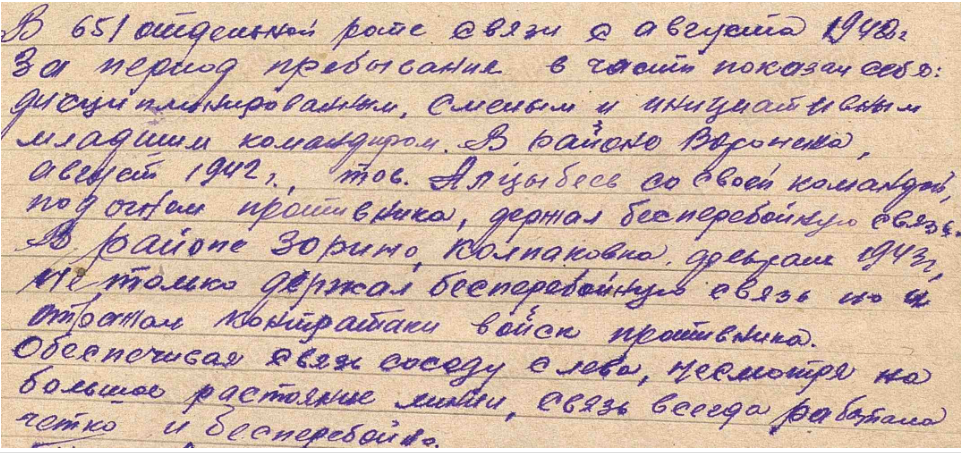 В 651 отдельной роте связи с августа 1942г
За период пребывания в части показал себя:
дисциплинированным, смелым и инициативным
младшим командиром. В районе Воронежа,
август 1942 г., тов. Алцыбеев со своей командой,
под огнем противника, держал бесперебойную связь.
В районе Зорино, Колпаковка, февраль 1943г,
не только держал бесперебойную связь но и
отражал контратаки войск противника.
Обеспечивая связь соседу слева, несмотря на
большое растояние линии, связь всегда работала
четко и бесперебойно.